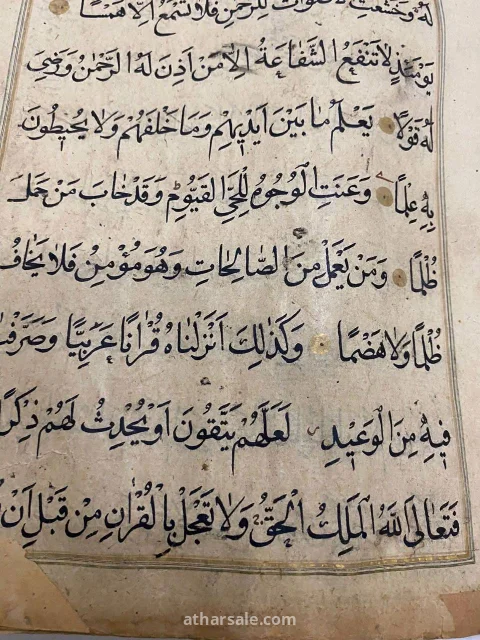 لَهُ وَخَشَعَتِ الْاَصْوَاتُ لِلرَّحْمٰنِ فَلَا تَسْمَعُ اِلَّا هَمْسًا
يَوْمَئِذٍ لَا تَنْفَعُ الشَّفَاعَةُ اِلَّا مَنْ اَذِنَ لَهُ الرَّحْمٰنُ وَرَضِىَ
لَهُ قَوْلًا يَعْلَمُ مَا بَيْنَ اَيْدِيهِمْ وَمَا خَلْفَهُمْ وَلَا يُحِيطُونَ
بِهِ عِلْمًا وَعَنَتِ الْوُجُوهُ لِلْحَيِّ الْقَيُّومِ وَقَدْ خَابَ مَنْ حَمَلَ
ظُلْمًا وَمَنْ يَعْمَلْ مِنَ الصَّالِحَاتِ وَهُوَ مُؤْمِنٌ فَلَا يَخَافُ
ظُلْمًا وَلَا هَضْمًا وَكَذٰلِكَ اَنْزَلْنَاهُ قُرْاٰنًا عَرَبِيًّا وَصَرَّفْنَا
فِيهِ مِنَ الْوَعِيدِ لَعَلَّهُمْ يَتَّقُونَ اَوْ يُحْدِثُ لَهُمْ ذِكْرًا
فَتَعَالَى اللّٰهُ الْمَلِكُ الْحَقُّ وَلَا تَعْجَلْ بِالْقُرْاٰنِ مِنْ قَبْلِ اَنْ
atharsale.com